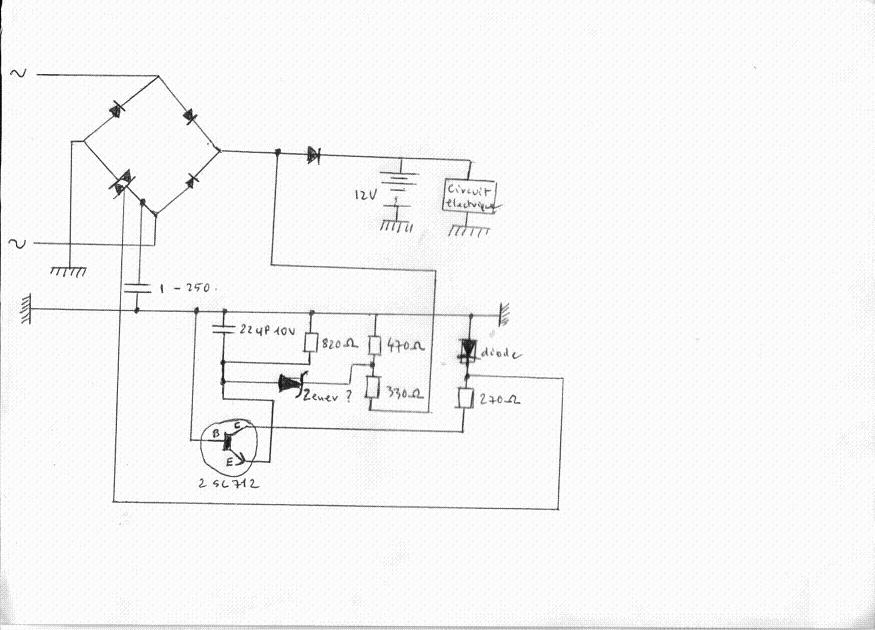 ~
12V
Circuit
électrique
~
1 - 250.
22µF 10V
820Ω
470Ω
diode
Zener ?
330Ω
270Ω
B
C
E
2SC712